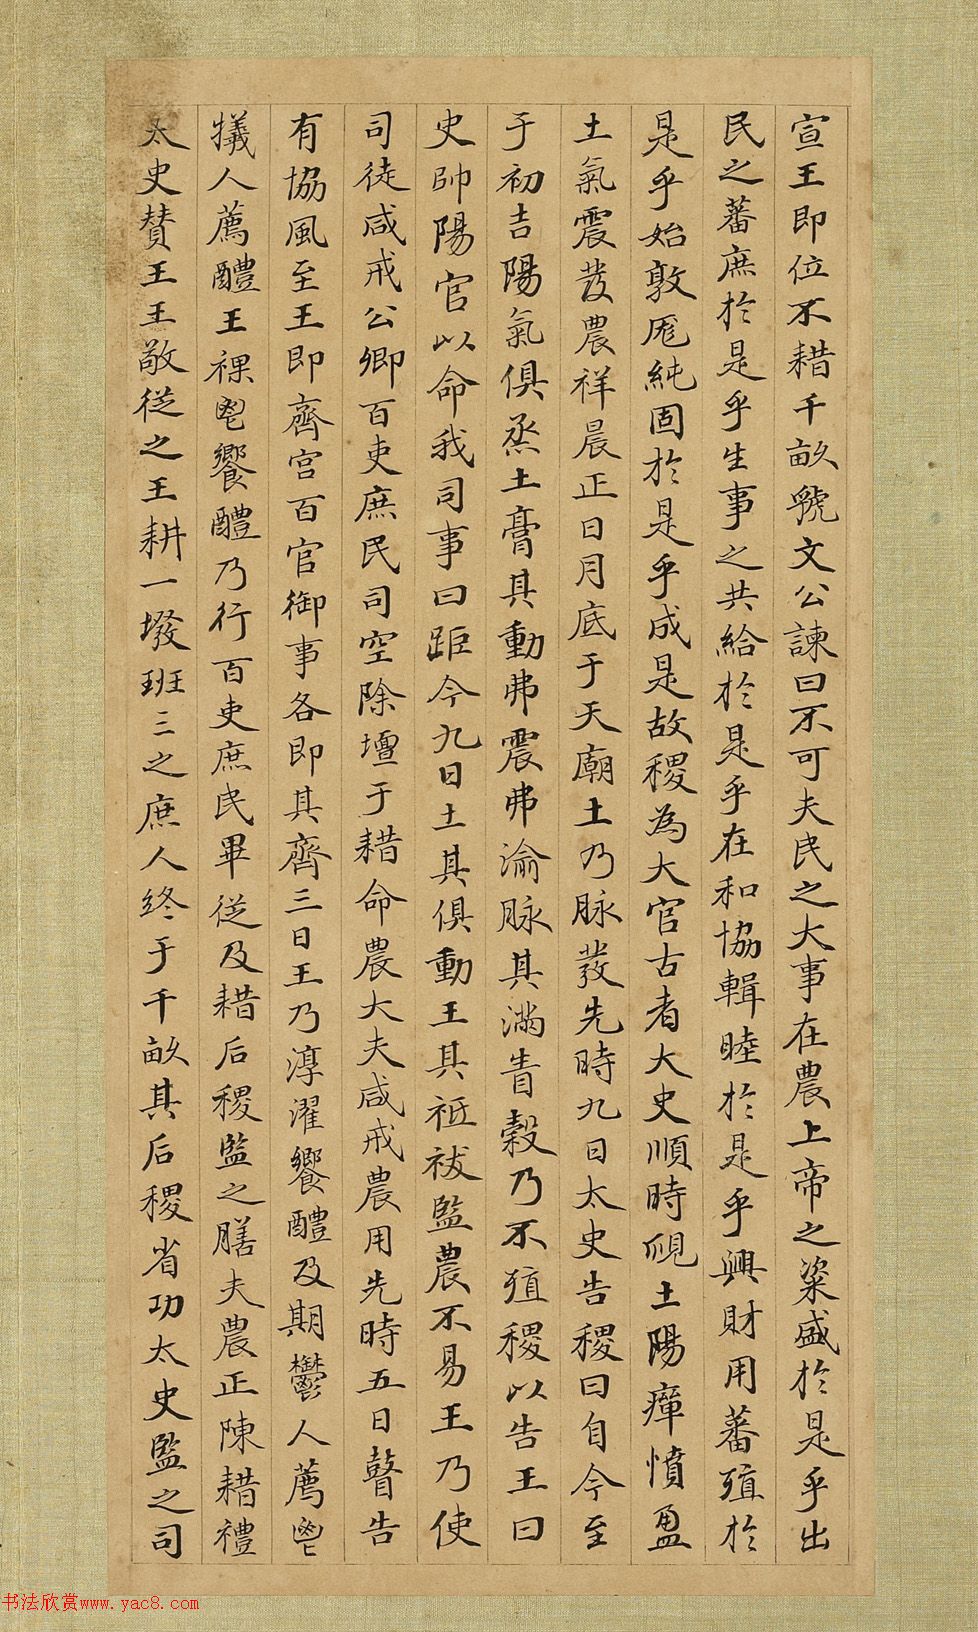 宣王即位不耤千畝虢文公諫曰不可夫民之大事在農上帝之粢盛於是乎出
民之蕃庶於是乎生事之共給於是乎在和協輯睦於是乎興財用蕃殖於
是乎始敦厖純固於是乎成是故稷為大官古者大史順時覛土陽癉憤盈
土氣震發農祥晨正日月底于天廟土乃脉發先時九日太史告稷曰自今至
于初吉陽氣俱烝土膏其動弗震弗渝脉其滿眚穀乃不殖稷以告王曰
史帥陽官以命我司事曰距今九日土其俱動王其祗祓監農不易王乃使
司徒咸戒公卿百吏庶民司空除壇于耤命農大夫咸戒農用先時五日瞽告
有協風至王即齊宫百官御事各即其齊三日王乃淳濯饗醴及期鬱人薦鬯
犧人薦醴王祼鬯饗醴乃行百吏庶民畢從及耤后稷監之膳夫農正陳耤禮
太史贊王王敬從之王耕一墢班三之庶人終于千畝其后稷省功太史監之司
书法欣赏www.yac8.com